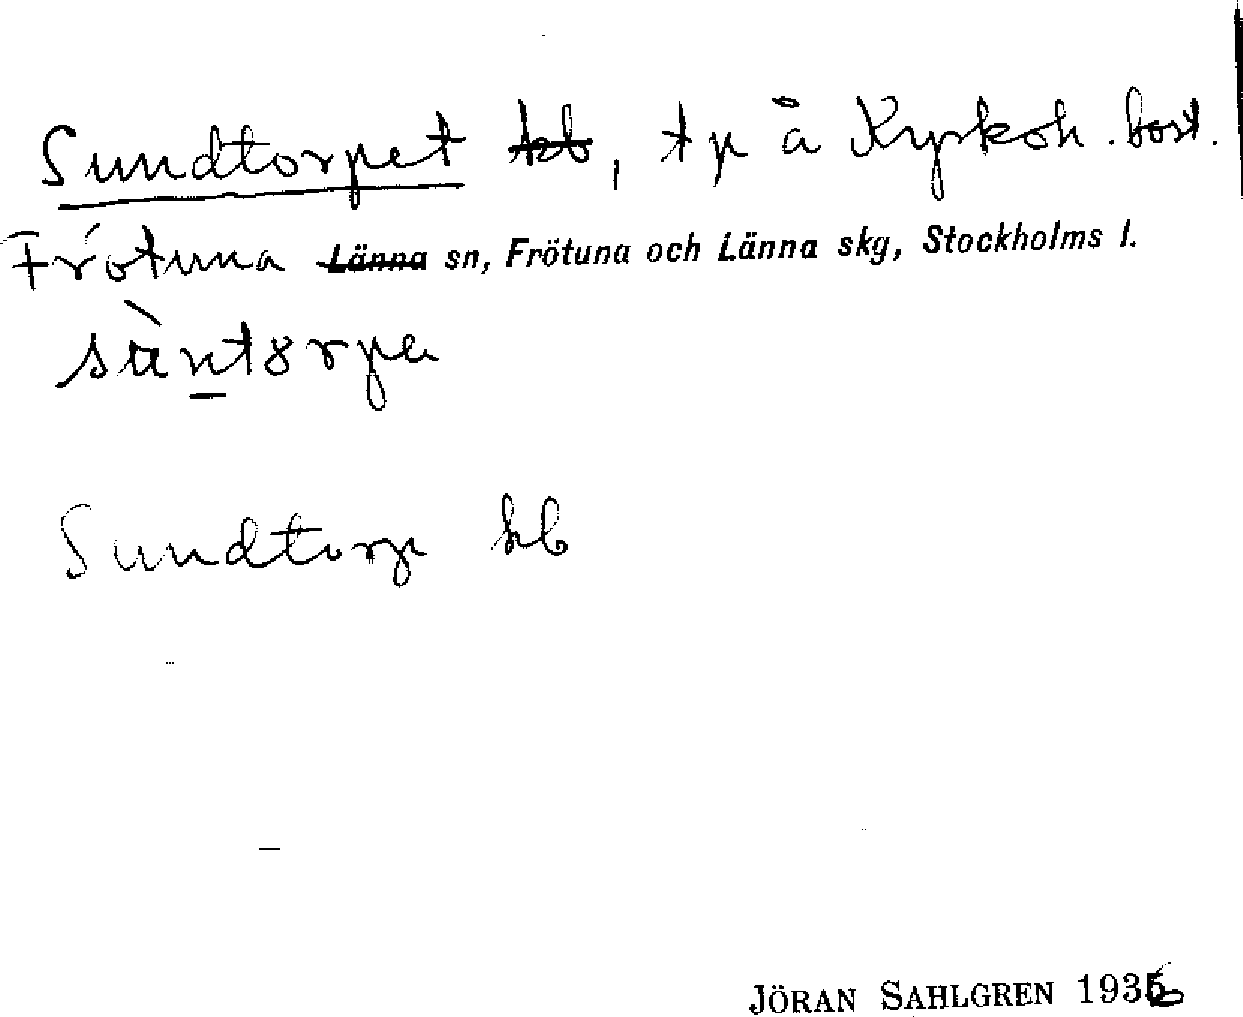 Sundtorpet kb, tp å Kyrkoh. bost.
Frötuna Länna sn, Frötuna och Länna skg, Stockholms l.
Sundtorp kb
JÖRAN SAHLGREN 1936